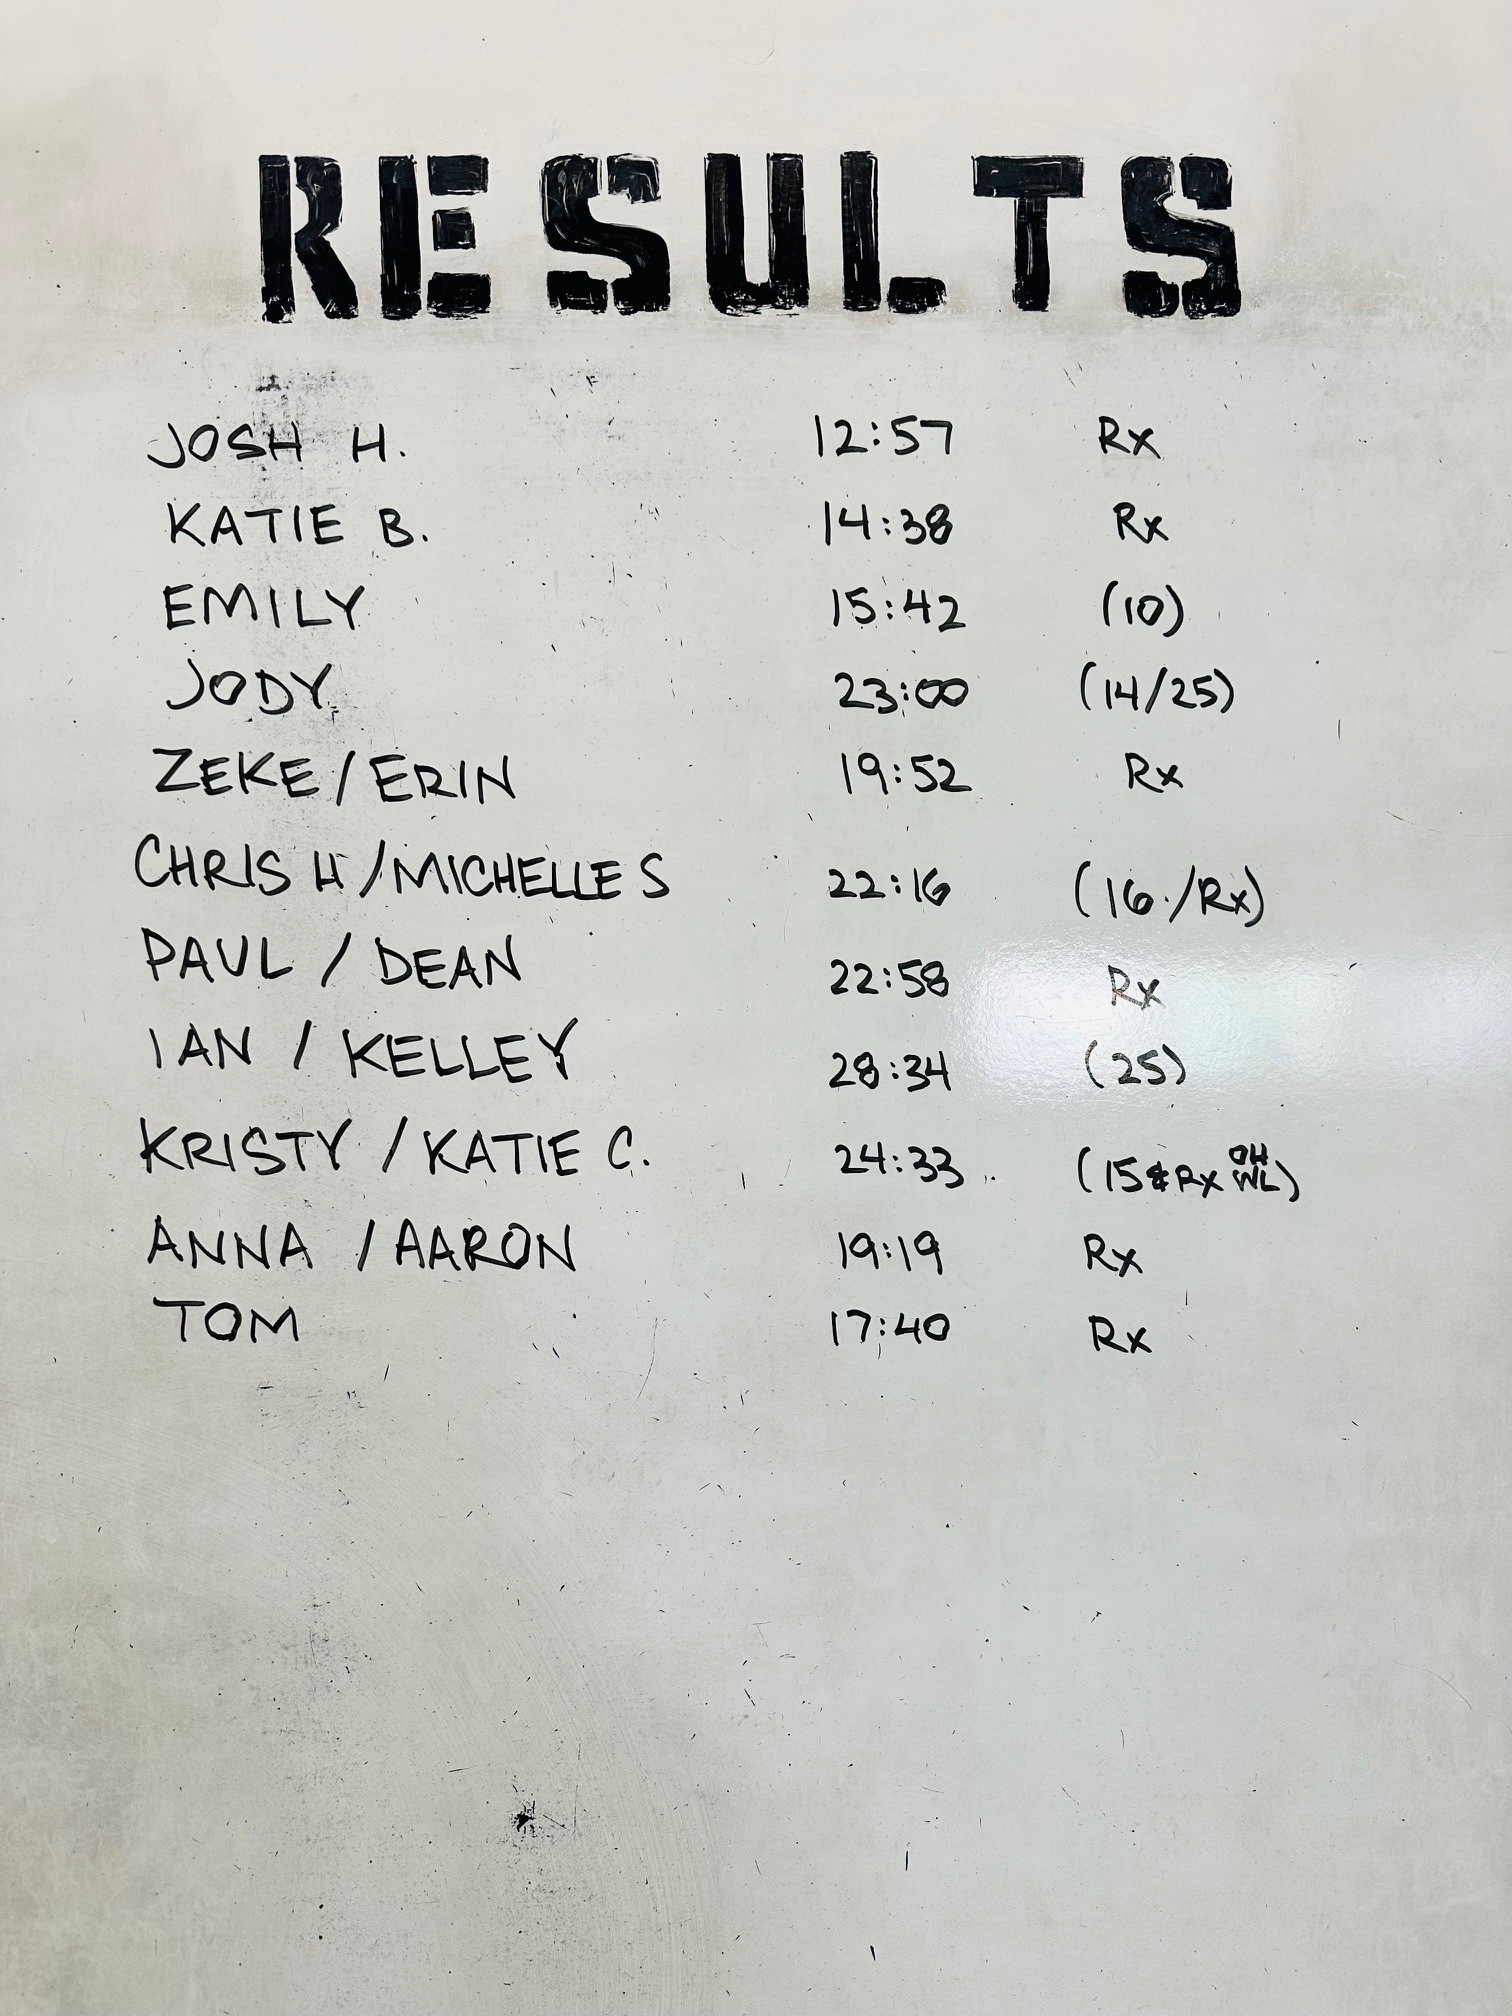 RESULTS
JOSH H. 12:57 Rx
KATIE B. 14:38 Rx
EMILY 15:42 (10)
JODY 23:00 (14/25)
ZEKE/ERIN 19:52 Rx
CHRIS H/MICHELLE S 22:16 (16/Rx)
PAUL / DEAN 22:58 Rx
IAN / KELLEY 28:34 (25)
KRISTY / KATIE C. 24:33 (15 & Rx OH WL)
ANNA / AARON 19:19 Rx
TOM 17:40 Rx